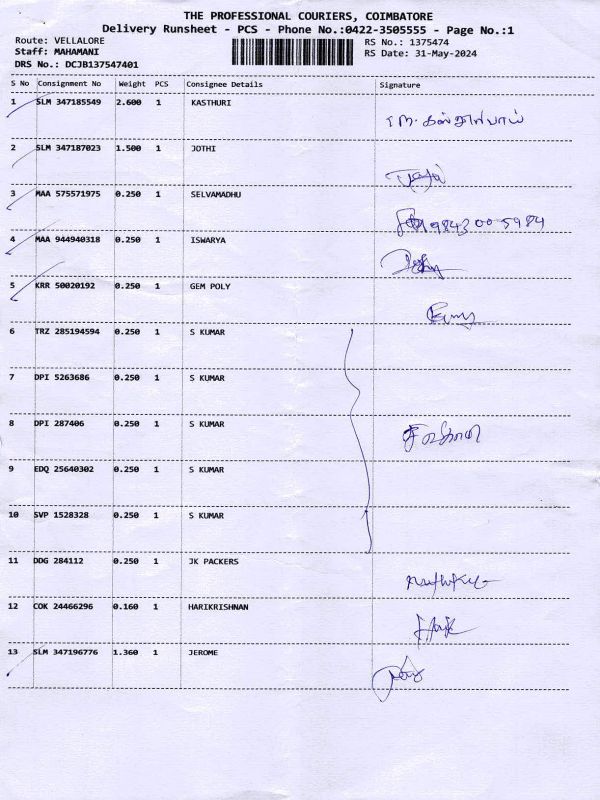 THE PROFESSIONAL COURIERS, COIMBATORE
Delivery Runsheet - PCS - Phone No.:0422-3505555 - Page No.:1
Route: VELLALORE RS No.: 1375474
Staff: MAHAMANI RS Date: 31-May-2024
DRS No.: DCJB137547401
S No Consignment No Weight PCS Consignee Details Signature
1 SLM 347185549 2.600 1 KASTHURI
2 SLM 347187023 1.500 1 JOTHI
3 MAA 575571975 0.250 1 SELVAMADHU
9843005984
4 MAA 944940318 0.250 1 ISWARYA
5 KRR 50020192 0.250 1 GEM POLY
6 TRZ 285194594 0.250 1 S KUMAR
7 DPI 5263686 0.250 1 S KUMAR
8 DPI 287406 0.250 1 S KUMAR
9 EDQ 25640302 0.250 1 S KUMAR
10 SVP 1528328 0.250 1 S KUMAR
11 DDG 284112 0.250 1 JK PACKERS
12 COK 24466296 0.160 1 HARIKRISHNAN
13 SLM 347196776 1.360 1 JEROME